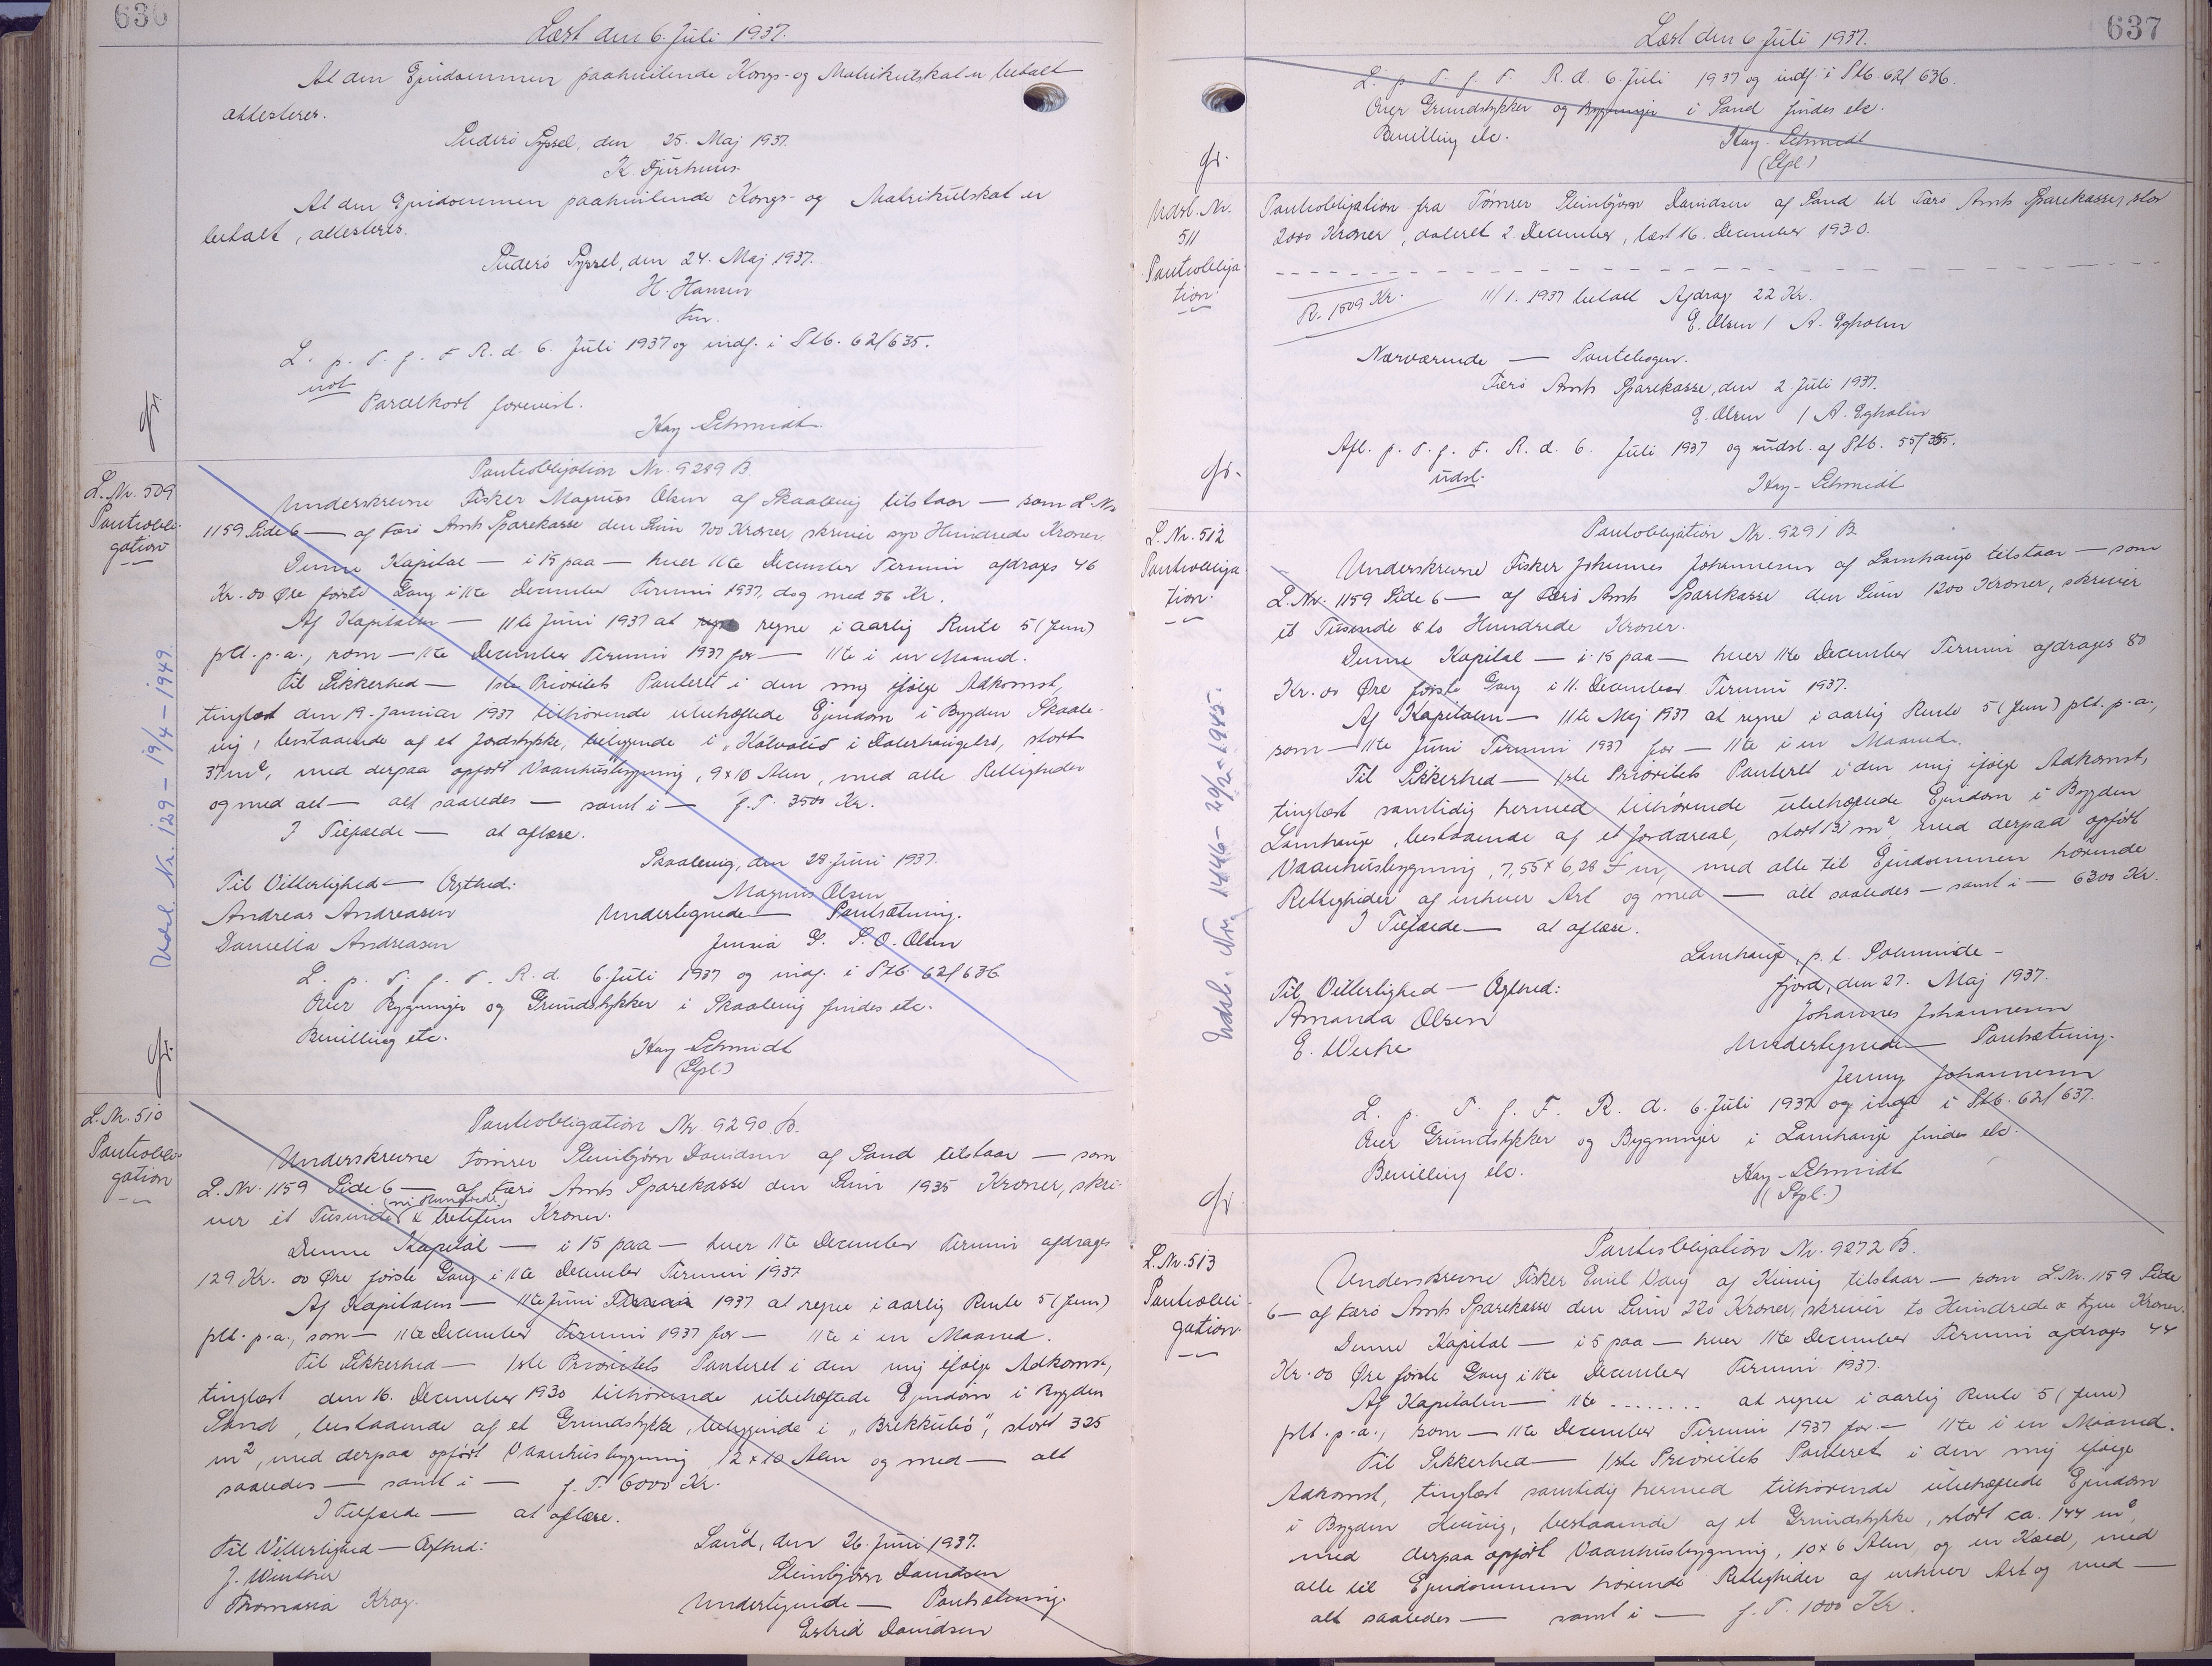 636
Læst den 6. Juli 1937.
At den Ejendommen paahvilende Kongs- og Matrikulskat er betalt
attesteres.
Suderø Syssel, den 25. Maj 1937.
K. Djurhuus.
At den Ejendommen paahvilende Kongs- og Matrikulskat er
betalt, attesteres.
Suderø Syssel, den 24. Maj 1937.
H. Hansen
L. p. T. f. F. R. d. 6. Juli 1937 og indf. i Ptb. 62/635.
Parcelkort forevist.
Kay Schmidt.
L. Nr. 509
Pantobli-
gation
Pantobligation Nr. 9289 B.
Underskrevne Fisker Magnus Olsen af Skaalevig tilstaar — som L. Nr.
1159 Side 6 — af Færø Amts Sparekasse den Sum 700 Kroner, skriver syv Hundrede Kroner.
Denne Kapital — i 15 paa — hver 11te December Termin afdrages 46
Kr. 00 Øre første Gang i 11te December Termin 1937, dog med 56 Kr.
Af Kapitalen — 11te Juni 1937 at regne i aarlig Rente 5 (fem)
pCt. p. a., som — 11te December Termin 1937 for — 11te i en Maaned.
Til Sikkerhed — 1ste Prioritets Panteret i den mig ifølge Adkomst,
tinglæst den 19. Januar 1937 tilhørende ubehæftede Ejendom i Bygden Skaale-
vig, bestaaende af et Jordstykke, beliggende i stort
37 m², med derpaa opført Vaanhusbygning, 9 x 10 Alen, med alle Rettigheder
og med alt — alt saaledes — samt i — f. T. 3500 Kr.
I Tilfælde — at aflæse.
Skaalevig, den 28. Juni 1937.
Til Vitterlighed — Ægthed:
Magnus Olsen
Andreas Andreasen
Undertegnede — Pantsætning.
Daniella Andreasen
S. O. Olsen
L. p. T. f. F. R. d. 6. Juli 1937 og indf. i Ptb. 62/636
Over Bygninger og Grundstykker i Skaalevig findes etc.
Bevilling etc.
Kay Schmidt
(Stpl.)
Udsl. Nr. 129 - 19/4 - 1949.
L. Nr. 510
Pantobli-
gation
Pantobligation Nr. 9290 B.
Underskrevne Tømrer Steinbjørn Davidsen af Sand tilstaar — som
L. Nr. 1159 Side 6 — af Færø Amts Sparekasse den Sum 1935 Kroner, skri-
(ni Hundrede)
ver et Tusende & tretifem Kroner.
Denne Kapital — i 15 paa — hver 11te December Termin afdrages
129 Kr. 00 Øre første Gang i 11te December Termin 1937
Af Kapitalen — 11te Juni 1937 at regne i aarlig Rente 5 (fem)
pCt. p. a., som — 11te December Termin 1937 for — 11te i en Maaned.
Til Sikkerhed — 1ste Prioritets Panteret i den mig ifølge Adkomst,
tinglæst den 16. December 1930 tilhørende ubehæftede Ejendom i Bygden
Sand, bestaaende af et Grundstykke, beliggende i „Brekkubø", stort 325
m², med derpaa opført Vaanhusbygning 12 x 10 Alen og med — alt
saaledes — samt i — f. T. 6000 Kr.
I Tilfælde — at aflæse.
Til Vitterlighed — Ægthed:
Sand, den 26. Juni 1937.
J. Winther
Steinbjørn Davidsen
Thomasia Krog.
Undertegnede — Pantsætning.
Estrid Davidsen
637
Læst den 6. Juli 1937.
L. p. T. f. F. R. d. 6. Juli 1937 og indf. i Ptb. 62/636.
Over Grundstykker og Bygninger i Sand findes etc.
Bevilling etc.
Kay Schmidt
(Stpl.)
Udsl. Nr.
511
Pantobliga-
tion.
Pantobligation fra Tømrer Steinbjørn Davidsen af Sand til Færø Amts Sparekasse, stor
2000 Kroner, dateret 2. December, læst 16. December 1930.
R. 1509 Kr.
11/1. 1937 betalt Afdrag 22 Kr.
E. Olsen / A. Egholm
Nærværende — Pantebogen.
Færø Amts Sparekasse, den 2. Juli 1937.
E. Olsen / A. Egholm
Afl. p. T. f. F. R. d. 6. Juli 1937 og udsl. af Ptb. 55/355.
udsl.
Kay Schmidt
L. Nr. 512
Pantobliga-
tion.
Pantobligation Nr. 9291 B
Underskrevne Fisker Johannes Johannesen af Lamhauge tilstaar — som
L. Nr. 1159 Side 6 — af Færø Amts Sparekasse den Sum 1200 Kroner, skriver
et Tusende & to Hundrede Kroner.
Denne Kapital — i 15 paa — hver 11te December Termin afdrages 80
Kr. 00 Øre første Gang i 11. December Termin 1937.
Af Kapitalen — 11te Maj 1937 at regne i aarlig Rente 5 (fem) pCt. p. a.,
som — 11te Juni Termin 1937 for — 11te i en Maaned.
Til Sikkerhed — 1ste Prioritets Panteret i den mig ifølge Adkomst,
tinglæst samtidig hermed tilhørende ubehæftede Ejendom i Bygden
Lamhauge, bestaaende af et Jordareal, stort 131 m², med derpaa opført
Vaanhusbygning, 7,55 x 6,28 m, med alle til Ejendommen hørende
Rettigheder af enhver Art og med — alt saaledes — samt i — 6300 Kr.
I Tilfælde — at aflæse.
Lamhauge, p. t. Solmunde-
Til Vitterlighed — Ægthed:
fjord, den 27. Maj 1937.
Amanda Olsen
Johannes Johannesen
E. Weihe
Undertegnede — Pantsætning.
Jenny Johannesen
L. p. T. f. F. R. d. 6. Juli 1937 og indf. i Ptb. 62/637.
Over Grundstykker og Bygninger i Lamhauge findes etc.
Bevilling etc.
Kay Schmidt
(Stpl.)
Udsl. Nr. 1446 - 29/12 - 1945.
L. Nr. 513
Pantobli-
gation.
Pantobligation Nr. 9272 B.
Underskrevne Fisker Emil Vang af Husevig tilstaar — som L. Nr. 1159 Side
6 — af Færø Amts Sparekasse den Sum 220 Kroner, skriver to Hundrede & tyve Kroner.
Denne Kapital — i 5 paa — hver 11te December Termin afdrages 44
Kr. 00 Øre første Gang i 11te December Termin 1937.
Af Kapitalen — 11te ........ at regne i aarlig Rente 5 (fem)
pCt. p. a., som — 11te December Termin 1937 for — 11te i en Maaned.
Til Sikkerhed — 1ste Prioritets Panteret i den mig ifølge
Adkomst, tinglæst samtidig hermed tilhørende ubehæftede Ejendom
i Bygden Husevig, bestaaende af et Grundstykke, stort ca. 144 m²,
med derpaa opført Vaanhusbygning, 10 x 6 Alen, og en Kæld, med
alle til Ejendommen hørende Rettigheder af enhver Art og med —
alt saaledes — samt i — f. T. 1000 Kr.